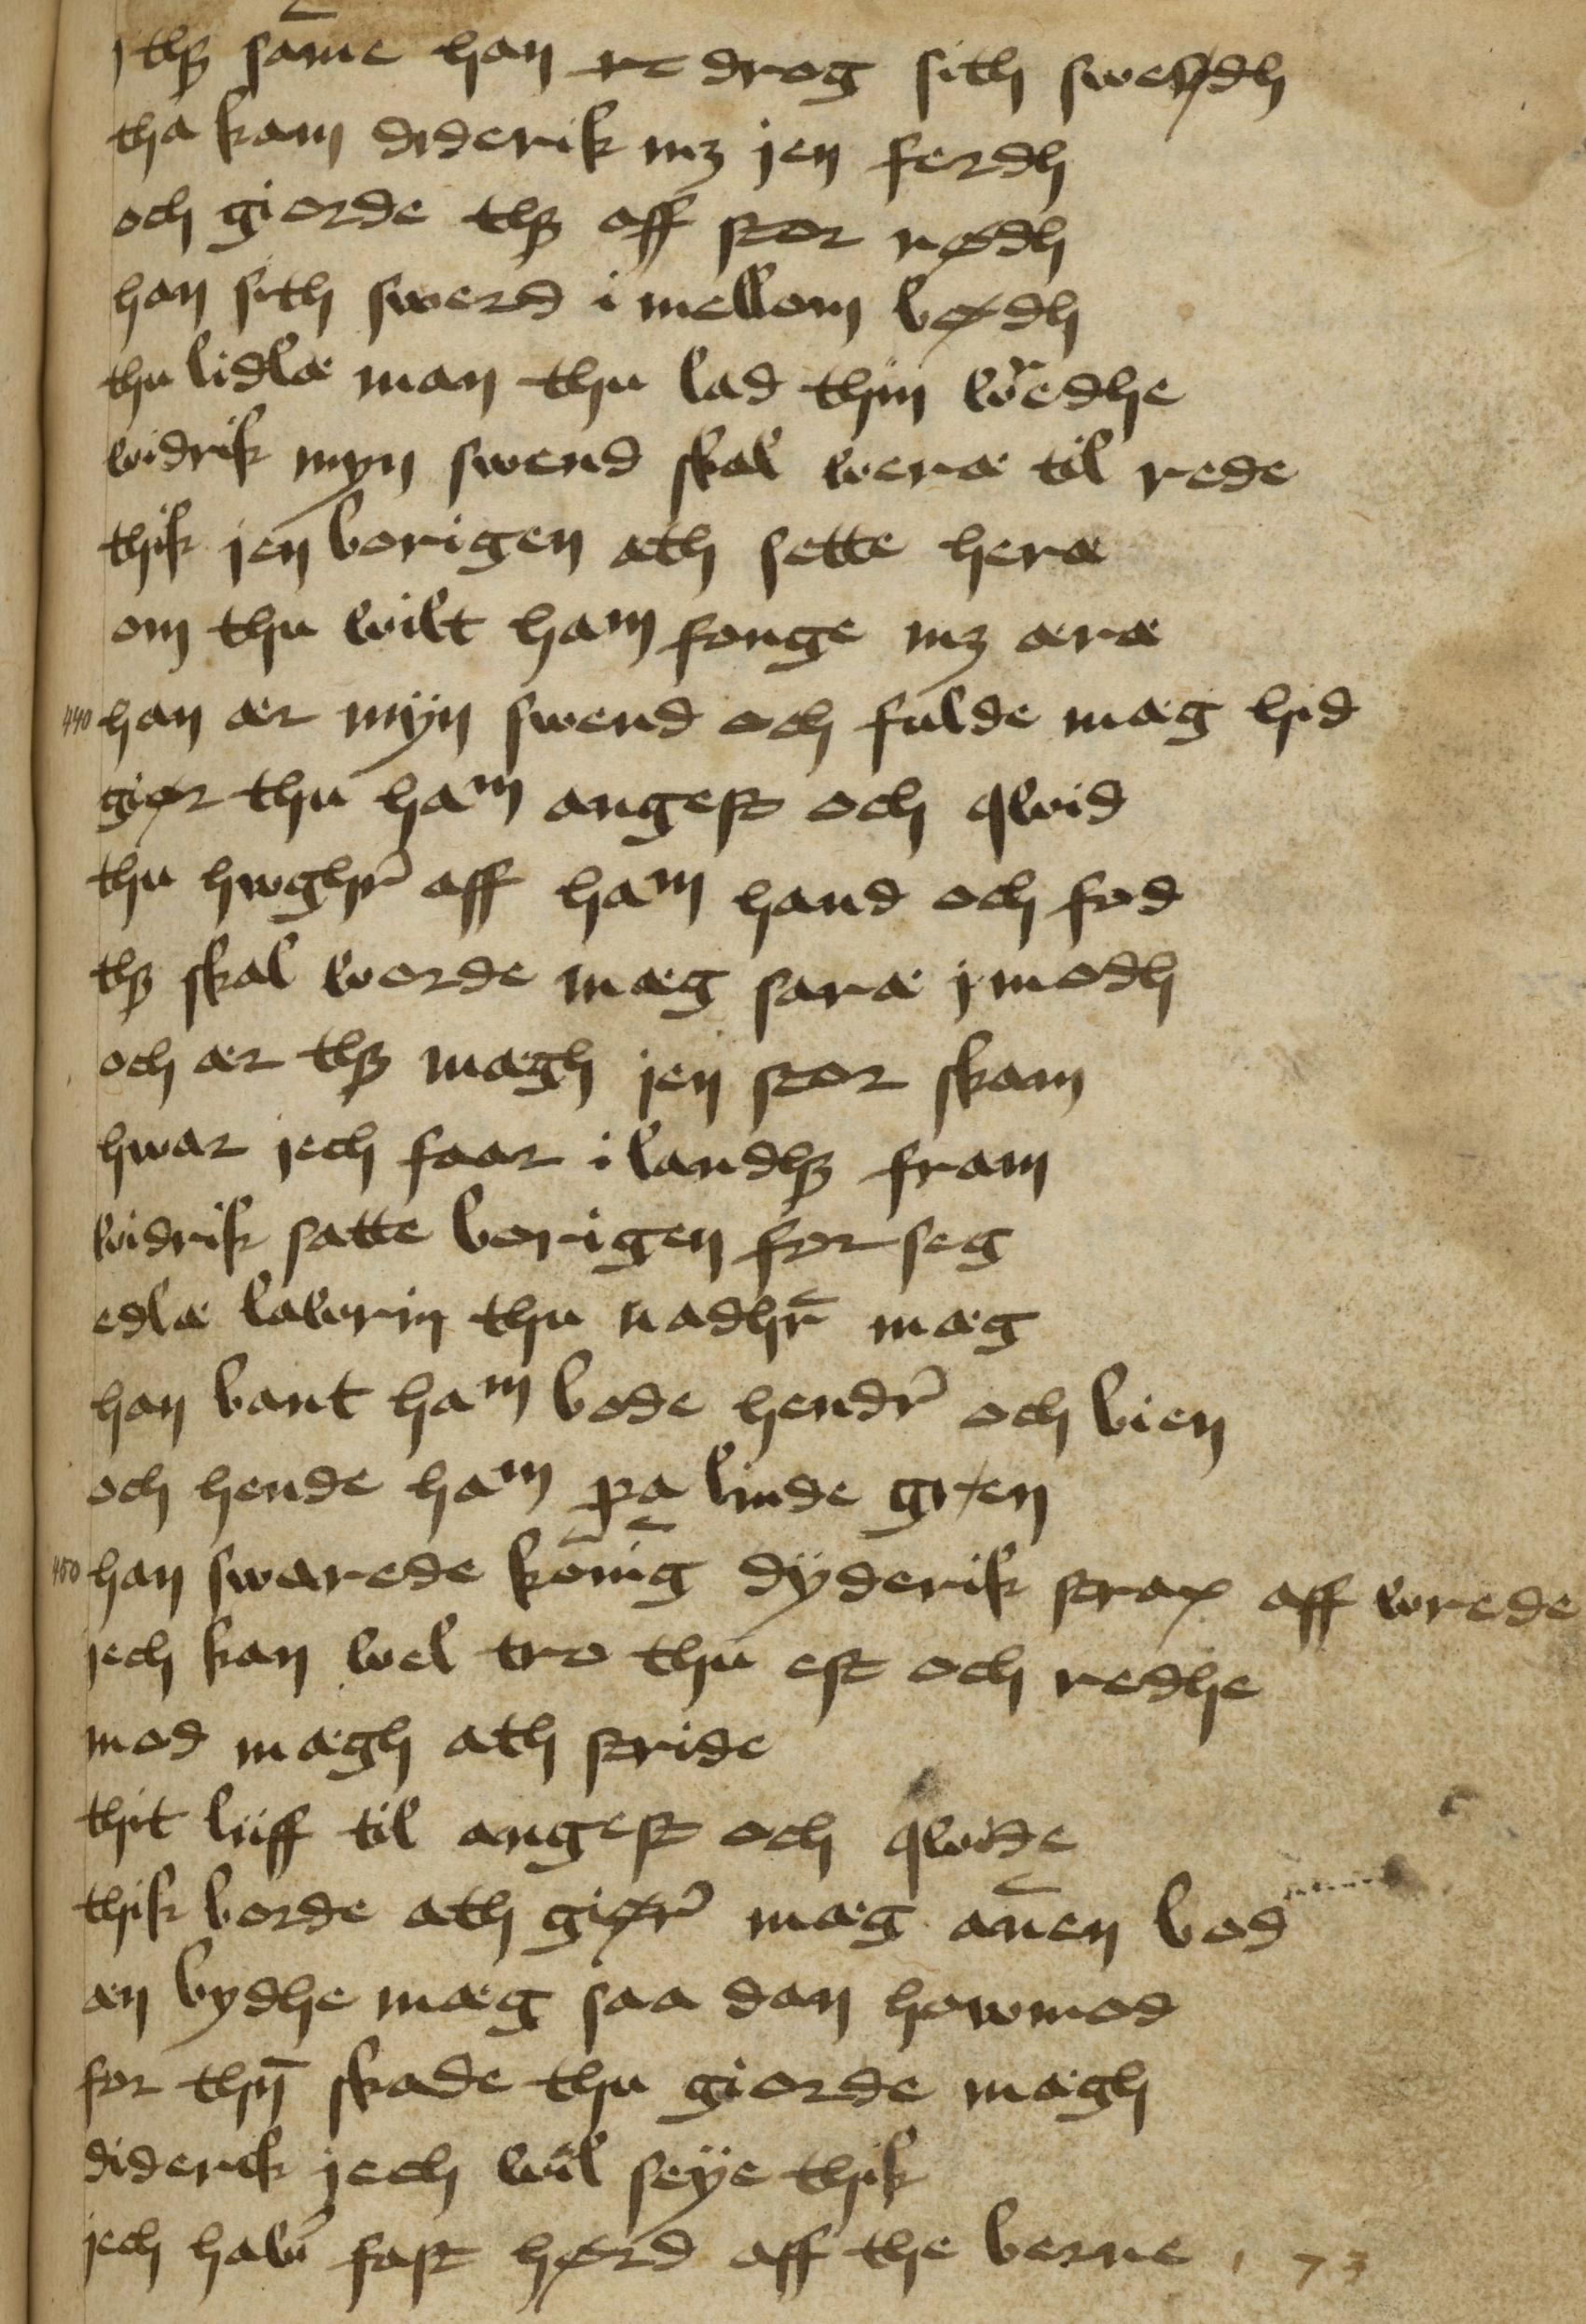 j thꝫ sāme han re drog sith swerdh
tha kam diderik mꝫ jen ferdh
och giorde thꝫ aff stor nødh
han sith swerd i mellom bødh
thu lidlæ man thu lad thin wredhe
widrik myn swend skal weræ til rede
thik jen borigen ath sette heræ
om thu wilt ham fonge mꝫ æræ
440 han ær mÿn swend och fulde mæg hid
giør thu ham angest och qwid
thu hwgher aff ham hand och fod
thꝫ skal worde mæg saræ j modh
och ær thꝫ mægh jen stor skam
hwar jech faar i landhꝫ fram
widrik satte borigen for seg
edlæ lawrin thu nadher mæg
han bant ham bode hender och bien
och hende ham pa linde grøen
450 han swarede kōnīg dÿderik strax aff wrede
jech kan wel tro thu est och redhe
mod mægh ath stride
thit liiff til angest och qwide
thik borde ath giører mæg an̄en bod
æn bydhe mæg saa dan howmod
for thn̄ skade thu giorde mægh
diderik jech wil seÿe thik
jech haw̄ fast hørd aff the berne 73